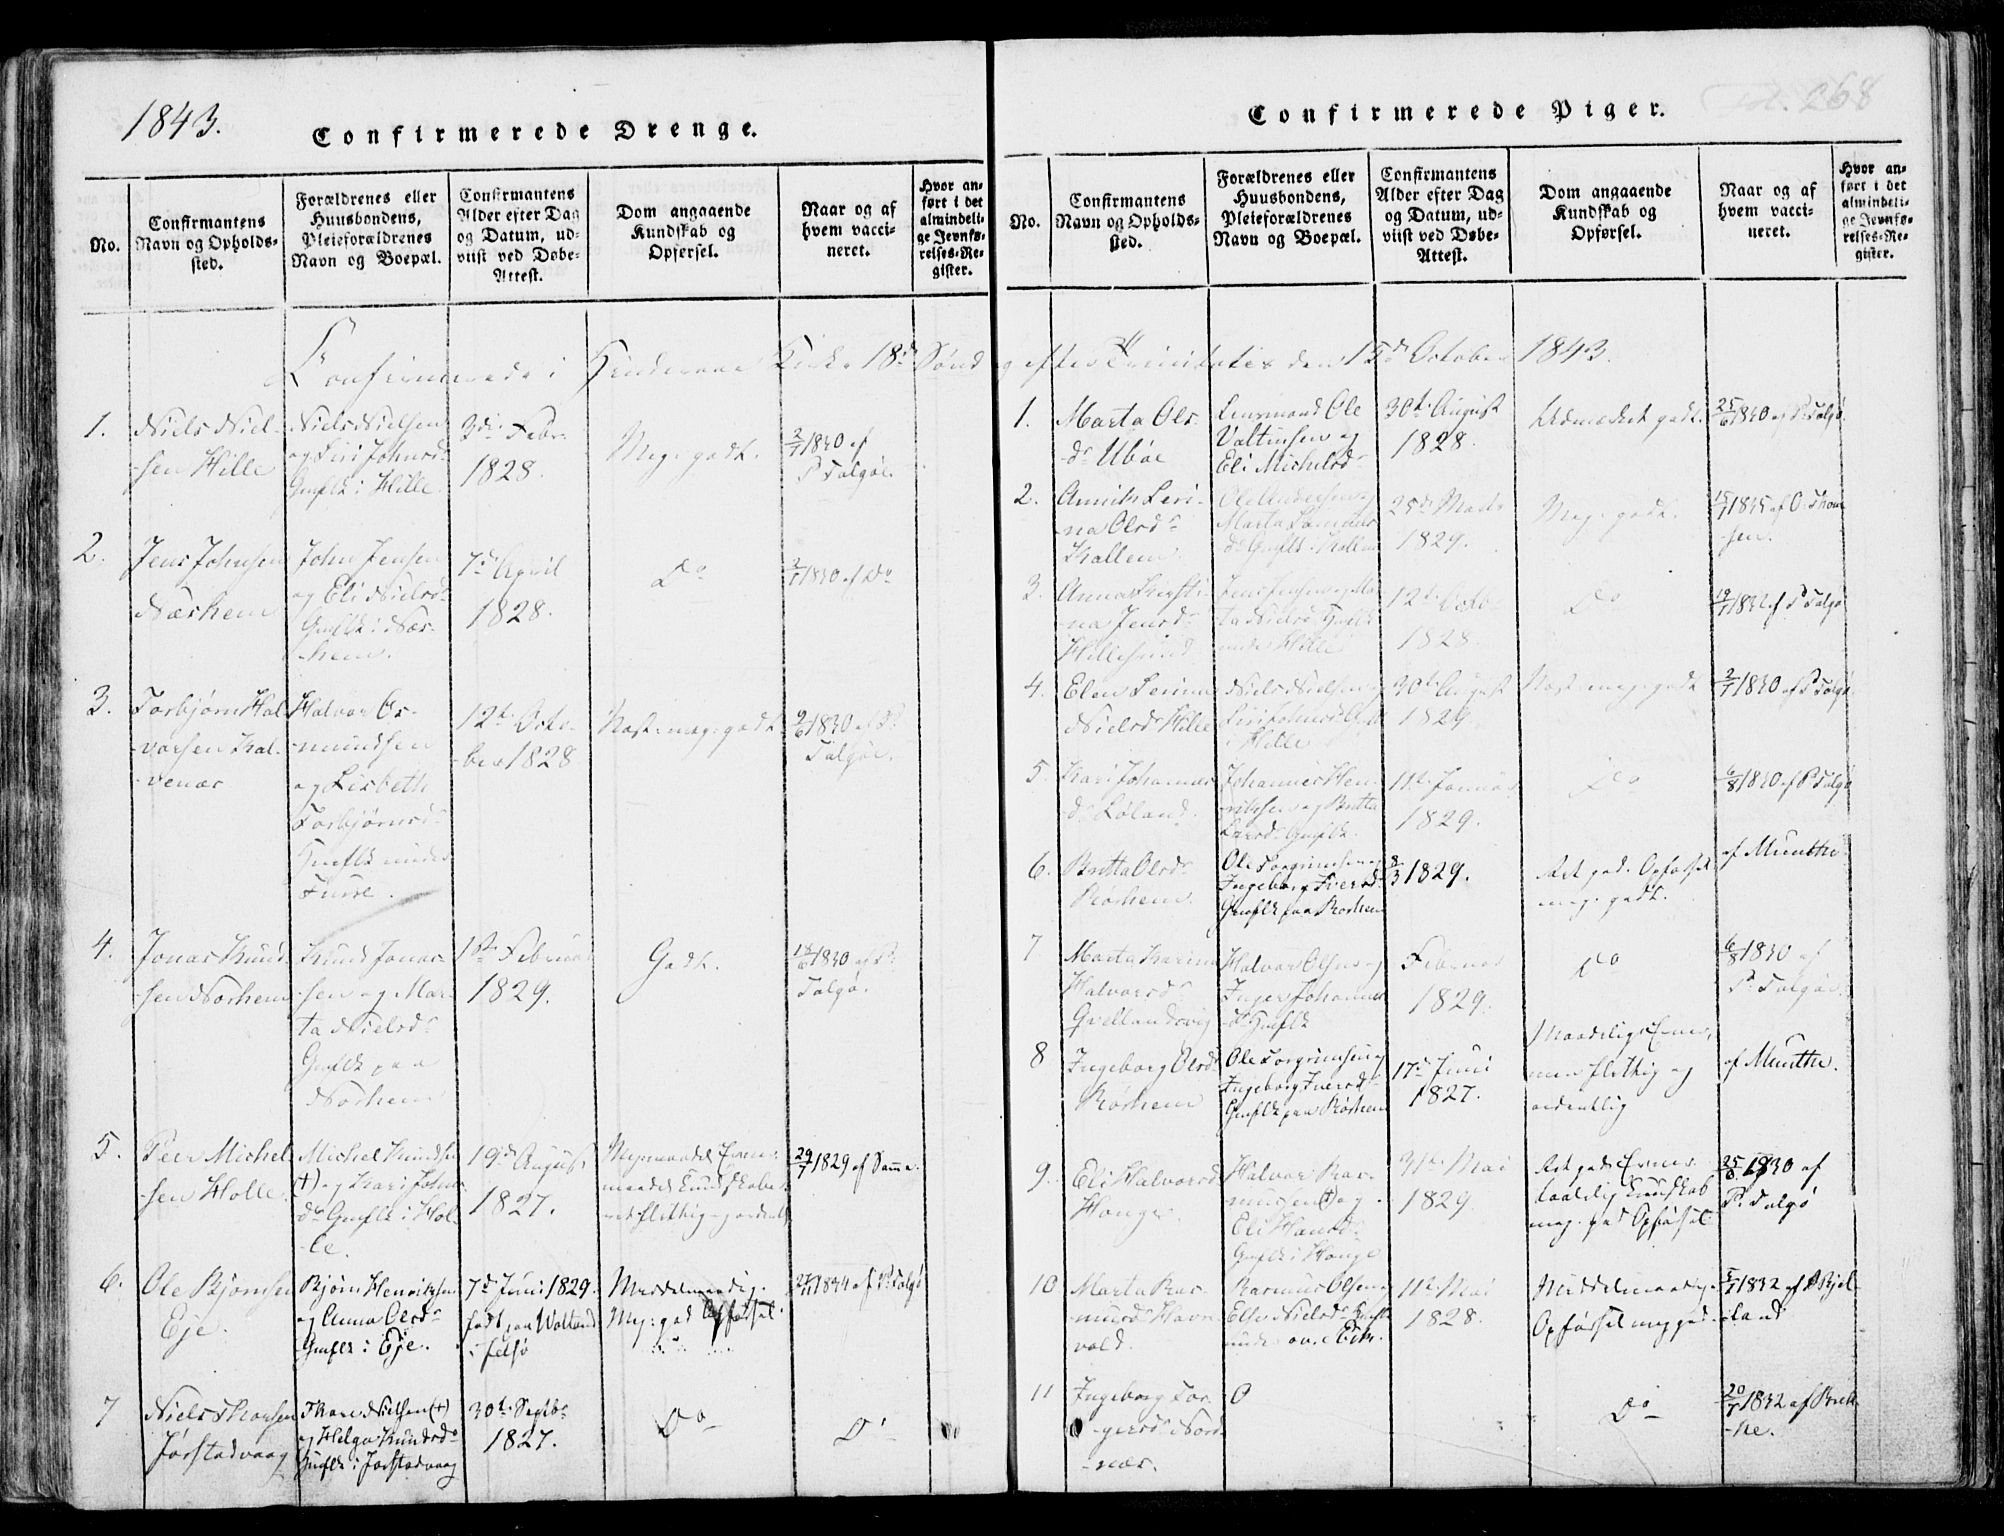 1843.
Confirmerede Drenge.
No.
Confirmantens
Navn og Opholds-
sted.
Forældrenes eller
Huusbondens,
Pleieforældrenes
Navn og Boepæl.
Confirmantens
Alder efter Dag
og Datum, ud-
viist ved Døbe-
Attest.
Dom angaaende
Kundskab og
Opførsel.
Naar og af
hvem vacci-
neret.
Hvor an-
ført i det
almindeli-
ge Jevnfø-
relses-Re-
gister.
Confirmerede i Hinderaae Kirke 18d Sønd
1.
Niels Niel-
-sen Hille
Niels Nielsen
og Siri Johnsd.
Gmflk i Hille
3die Febr.
1828.
Meg: godt.
2/7 1830 af
P Talgøe
2.
Jens Johnsen
Næshem
John Jensen
og Eli Nielsdr
Gmflk i Næs-
hem.
7de April
1828.
Do
2/7 1830 af Do
3.
Torbjørn Hal-
vorsen Kal-
-venæs
Halvor Os-
-mundsen
og Lisbeth
Torbjørnsd.
Gmflk under
Fuure.
12te Octo-
-ber 1828
Nest. meg: godt.
9/6 1830 af P
Talgøe.
4.
Jonas Knud-
-sen Norhem
Knud Jonas-
-sen og Mar-
ta Nielsdr
Gmflk paa
Norhem
1ste Februar
1829.
Godt.
18/6 1830 af P.
Talgø.
5.
Peer Michel-
-sen Holle
Michel Knudsen
(+) og Kari Johns
dr Gmflk i Hol-
le.
19de August
1827.
29/7 1829 af Samme.
6.
Ole Bjørnsen
Eje.
Bjørn Henriksen
og Anna Olesdr
Gmflk i Eje.
7de Juni 1829.
født paa Walland
i Felsø
Middelmaadig.
Meg: god Opførsel.
27/11 1834 af P. Talgø
7
Niels Thorsen
Jørstadvaag
Thore Nielsen (+)
og Helga Knudsdr
Gmflk i Jørstadvaag
30te Septbr
1827.
Do
Do
268
Confirmerede Piger.
No.
Confirmantens
Navn og Opholds-
sted.
Forældrenes eller
Huusbondens,
Pleieforældrenes
Navn og Boepæl.
Confirmantens
Alder efter Dag
og Datum, ud-
viist ved Døbe-
Attest.
Dom angaaende
Kundskab og
Opførsel.
Naar og af
hvem vacci-
neret.
Hvor an-
ført i det
almindeli-
ge Jevnfø-
relses-Re-
gister.
efter Trinitatis den 15de October 1843.
1.
Marta Ols-
dr Ubøe
Lensmand Ole
Valtinsen og
Eli Michelsdr
30te August
1828.
Udmærket godt.
25/6 1830 af P. Talgø
2.
Anniken Seri-
na Olsdr
Kallem
Ole Andersen og
Marta Samuels
dr Gmflk i Kallem
25de Marts
1829.
Meg: godt.
15/7 1835 af O. Thom
-sen.
3.
Anna Kirsti-
na Jensd.
Hillesund
Jens Jensen og Mar-
ta Nielsdr Gmflk
under Hille
12te Octo-
1828.
Do
19/7 1832 af P Talgø
4.
Elen Serina
Nielsdr Hille
Niels Nielsen og
Siri Johnsd. Gmflk
i Hille
30te August
1829
Nest. meg: godt
2/7 1830 af P Talgø
5.
Kari Johannes
dr Løland.
Johannes Hen-
-riksen og Britta
Larsd. Gmflk.
11te Januar
1829.
Do
6/8 1830 af P Talgø
6.
Britta Olsdr
Rørhem.
Ole Torgrimsen og
Ingeborg Iversd.
Gmflk paa Rørhem
8/3 1829.
Ret god. Opførsel
meg: godt.
af Munthe.
7
Marta Karina
Halvorsdr
Gvellandsvig
Halvor Olsen og
Inger Johannes
dr Gmflk
Februar
1829.
Do
6/8 1830 af
P. Talgøe
8
Ingeborg Olsdr
Rørhem
Ole Torgrimsen og
Ingeborg Iversdr
Gmflk paa Rørhem
17de Juni
1827.
Maadelige Evner,
men flittig og
ordentlig
af Munthe.
9.
Eli Halvorsd
Hauge.
Halvor Ras-
mussen (+) og
Eli Hansd.
Gmflk i Hauge
31te Mai
1829
Ret gode Evner.
taalelig Kundskab
meg. god Opførsel
25/6 1830 af
P. Talgø
10
Marta Ras-
musdr Havn
vold.
Rasmus Olsen og
Else Nielsdr Gmflk
under øvre Eike.
11te Mai
1828.
Middelmaadig.
Opførsel meg god.
5/7 1832 af Bjel-
land
11
Ingeborg Tor-
-gersdr Nord-
-næs.
O
Do
20/7 1832 af Brek-
-ke.